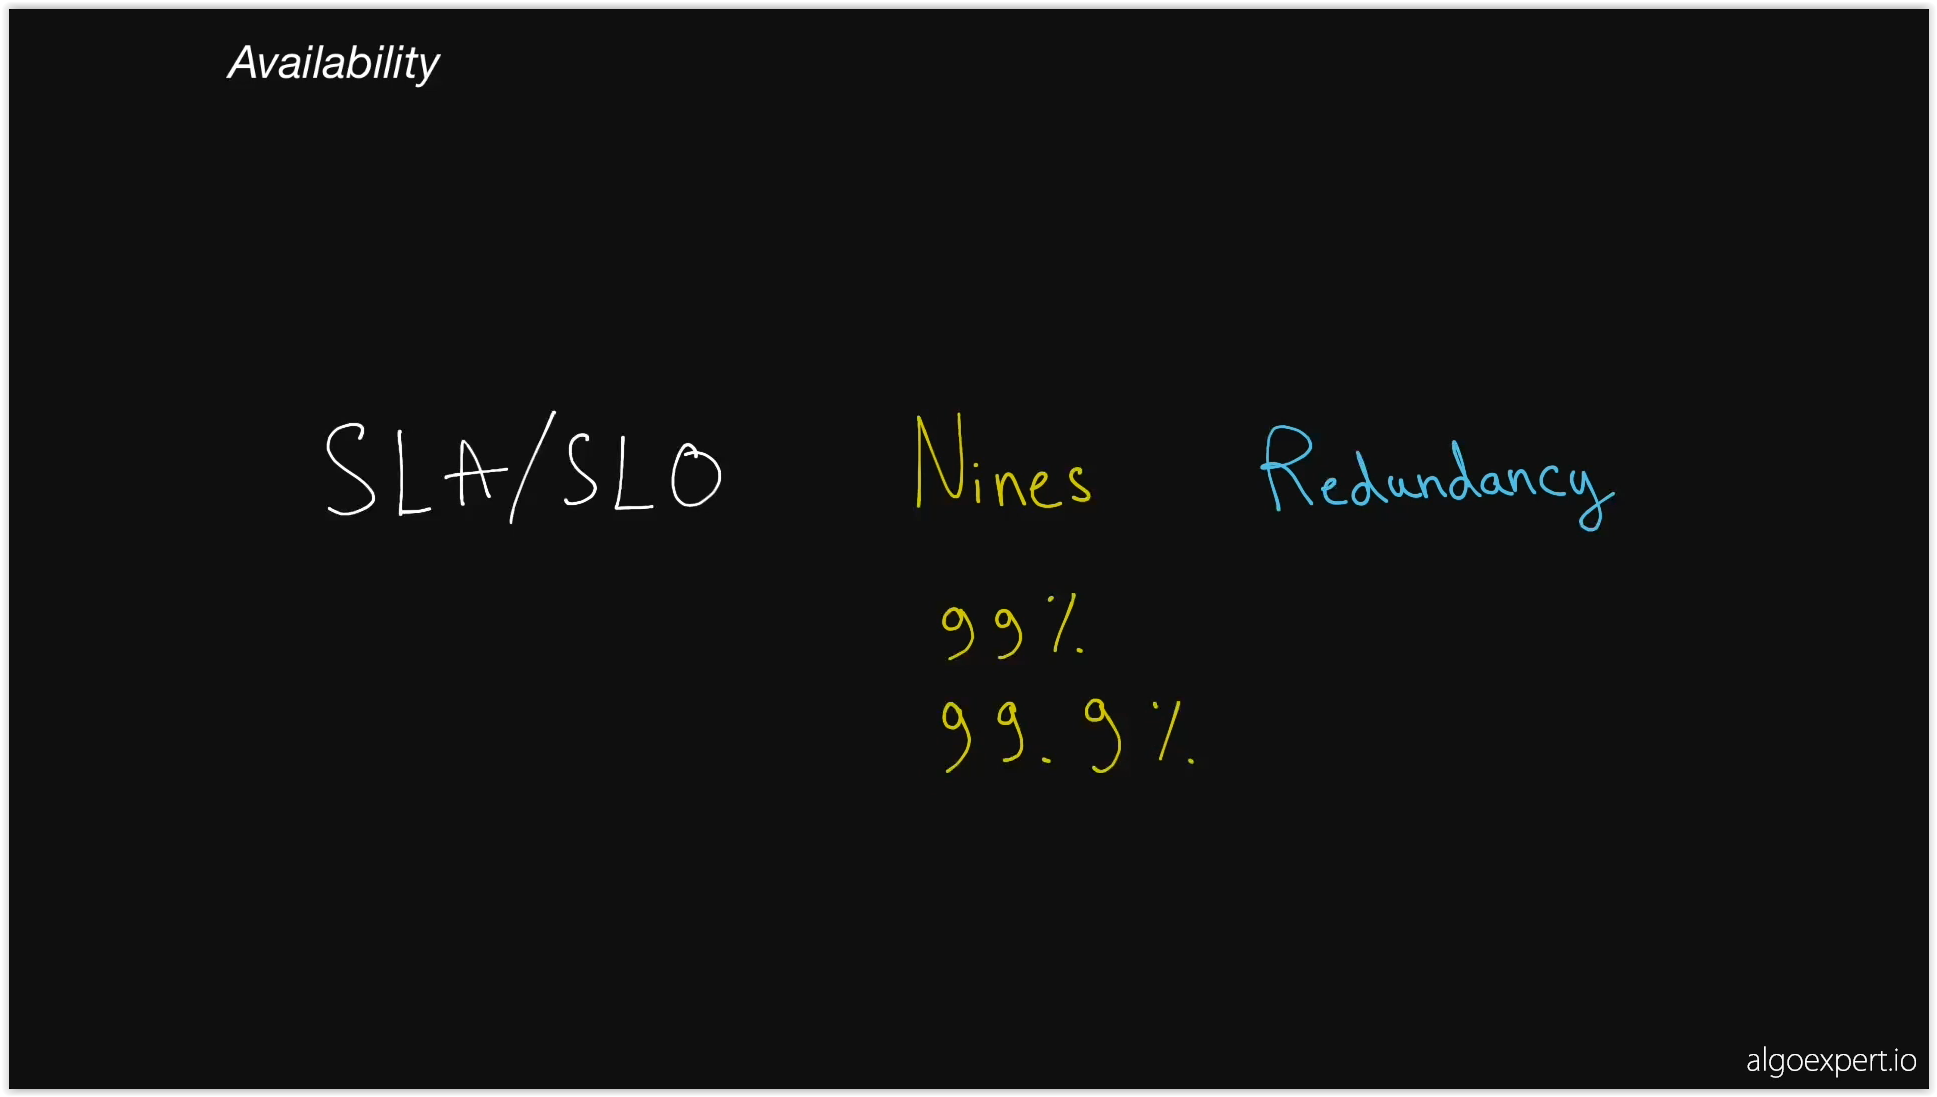 Availability
SLA/SLO Nines Redundancy
99%
99.9%
algoexpert.io